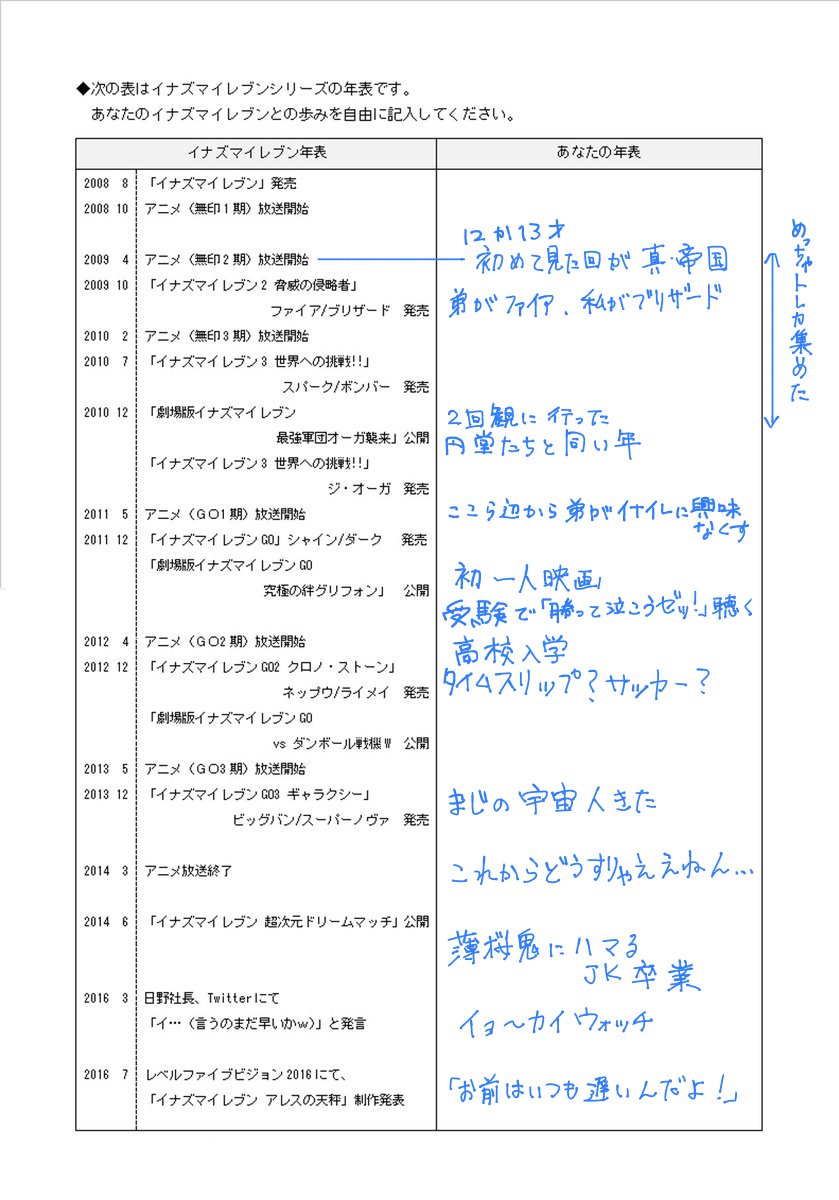 ◆次の表はイナズマイレブンシリーズの年表です。
あなたのイナズマイレブンとの歩みを自由に記入してください。
イナズマイレブン年表
あなたの年表
2008 8 「イナズマイレブン」発売
2008 10 アニメ（無印1期）放送開始
12か13才
2009 4 アニメ（無印2期）放送開始
初めて見た回が真・帝国
2009 10 「イナズマイレブン2 脅威の侵略者」
ファイア/ブリザード 発売
弟がファイア、私がブリザード
2010 2 アニメ（無印3期）放送開始
2010 7 「イナズマイレブン3 世界への挑戦!!」
スパーク/ボンバー 発売
めっちゃトレカ集めた
2010 12 「劇場版イナズマイレブン
最強軍団オーガ襲来」公開
2回観に行った
円堂たちと同い年
「イナズマイレブン3 世界への挑戦!!」
ジ・オーガ 発売
2011 5 アニメ（GO1期）放送開始
ここら辺から弟がイナイレに興味
なくす
2011 12 「イナズマイレブンGO」シャイン/ダーク 発売
「劇場版イナズマイレブンGO
究極の絆グリフォン」 公開
初一人映画
受験で「勝って泣こうゼッ!」聴く
2012 4 アニメ（GO2期）放送開始
高校入学
2012 12 「イナズマイレブンGO2 クロノ・ストーン」
ネップウ/ライメイ 発売
タイムスリップ?サッカー?
「劇場版イナズマイレブンGO
vs ダンボール戦機W 公開
2013 5 アニメ（GO3期）放送開始
2013 12 「イナズマイレブンGO3 ギャラクシー」
ビッグバン/スーパーノヴァ 発売
まじの宇宙人きた
2014 3 アニメ放送終了
これからどうすりゃええねん…
2014 6 「イナズマイレブン 超次元ドリームマッチ」公開
薄桜鬼にハマる
JK卒業
2016 3 日野社長、Twitterにて
「イ…（言うのまだ早いかw）」と発言
イョ〜カイウォッチ
2016 7 レベルファイブビジョン2016にて、
「イナズマイレブン アレスの天秤」制作発表
「お前はいつも遅いんだよ!」